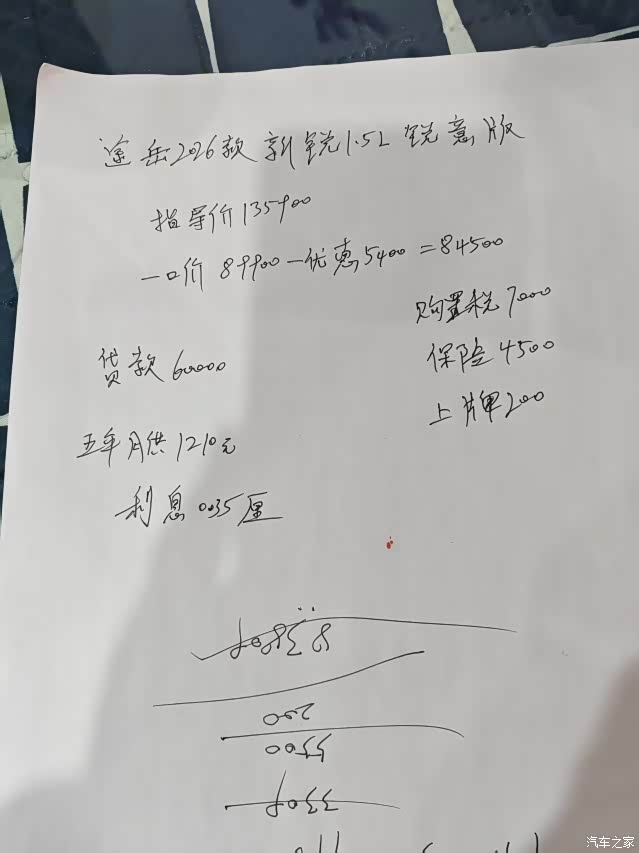 途岳2026款 新锐1.5L 锐意版
指导价135900
一口价 89900-优惠5400=84500
购置税7000
保险4500
上牌200
贷款60000
五年月供1210元
利息0.35厘
200
5500
汽车之家